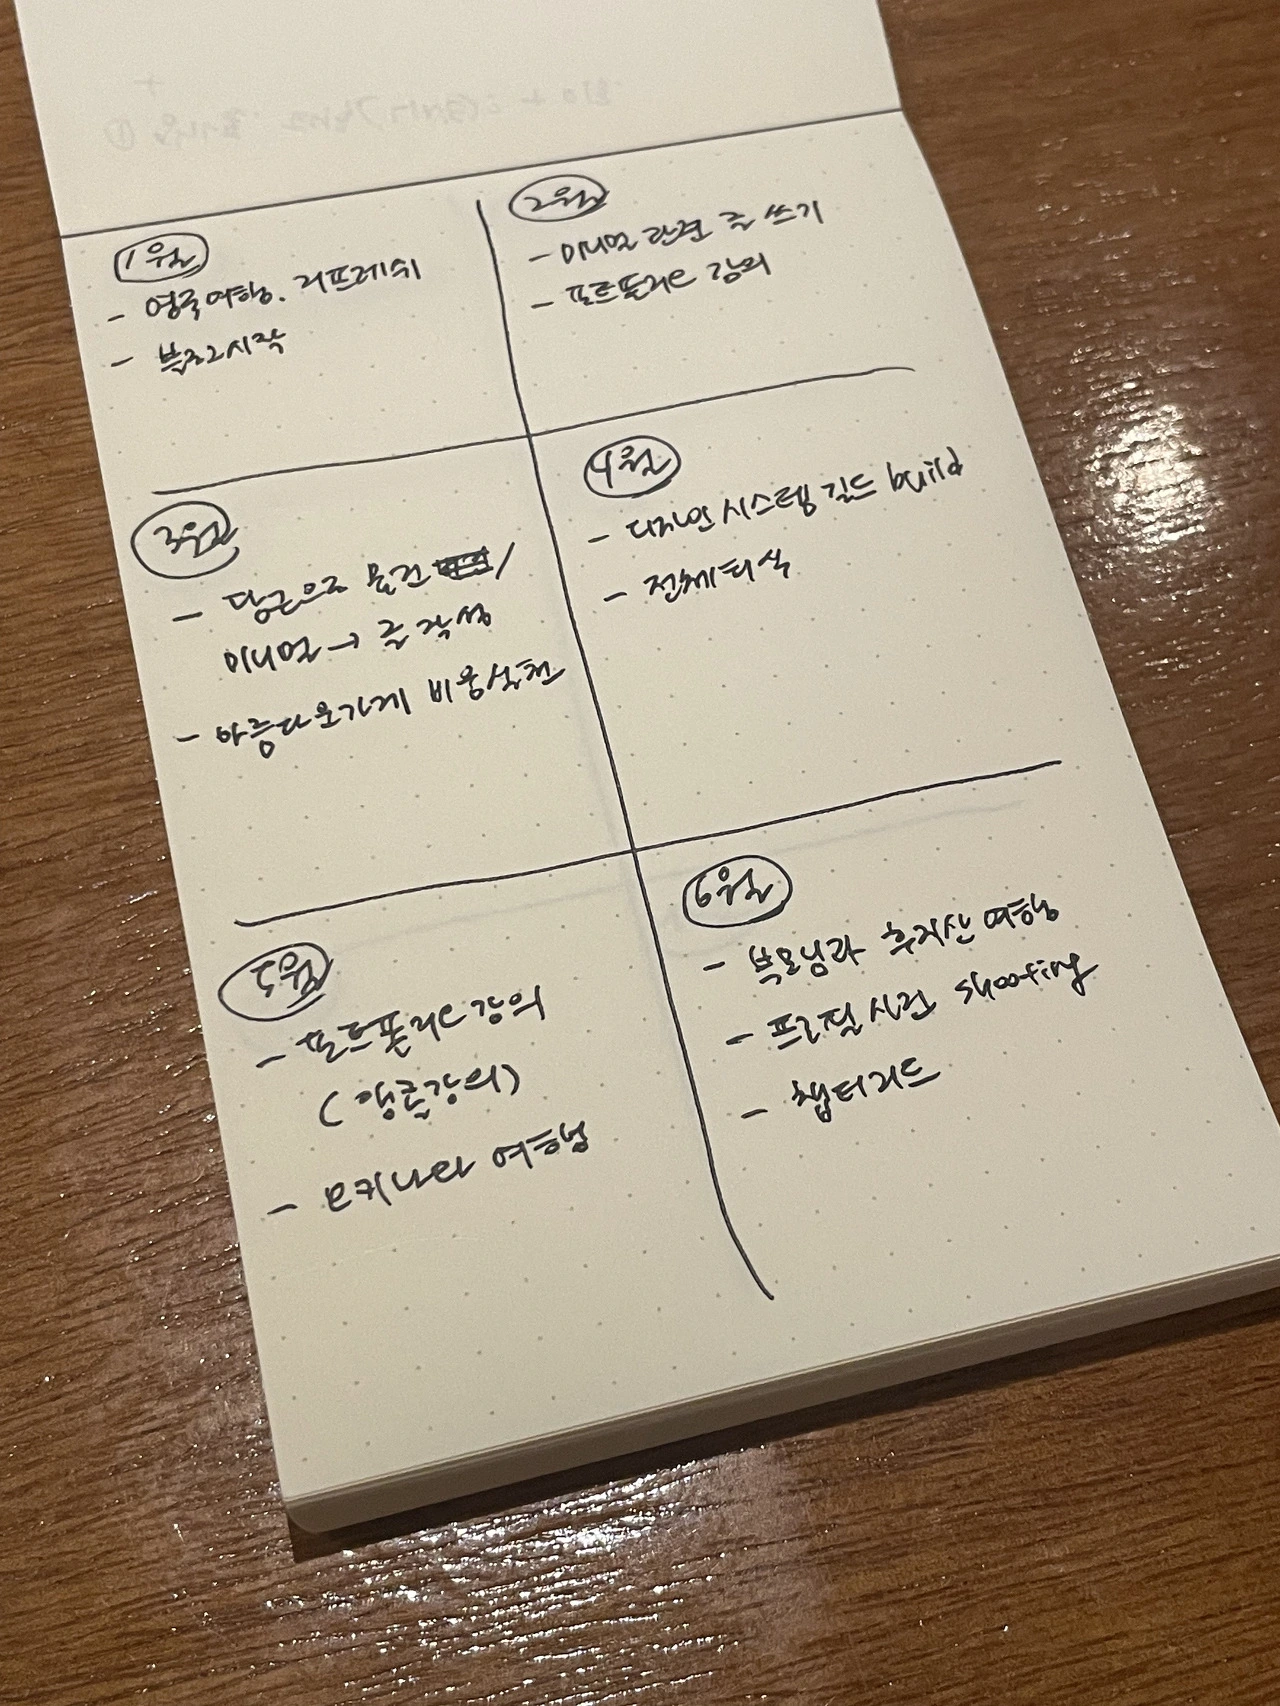 1월
- 영국여행. 리프레쉬
- 시작
2월
- 미니멀 관련 글 쓰기
- 포트폴리오 강의
3월
- 당근으로 물건 /
미니멀 → 글 작성
- 아름다운가게 비움실천
4월
- 디자인 시스템 길드 build
- 전체회식
5월
- 포트폴리오 강의
(앵콜강의)
- 오키나와 여행
6월
- 부모님과 후지산 여행
- 프로필 사진 shooting
- 챕터리드